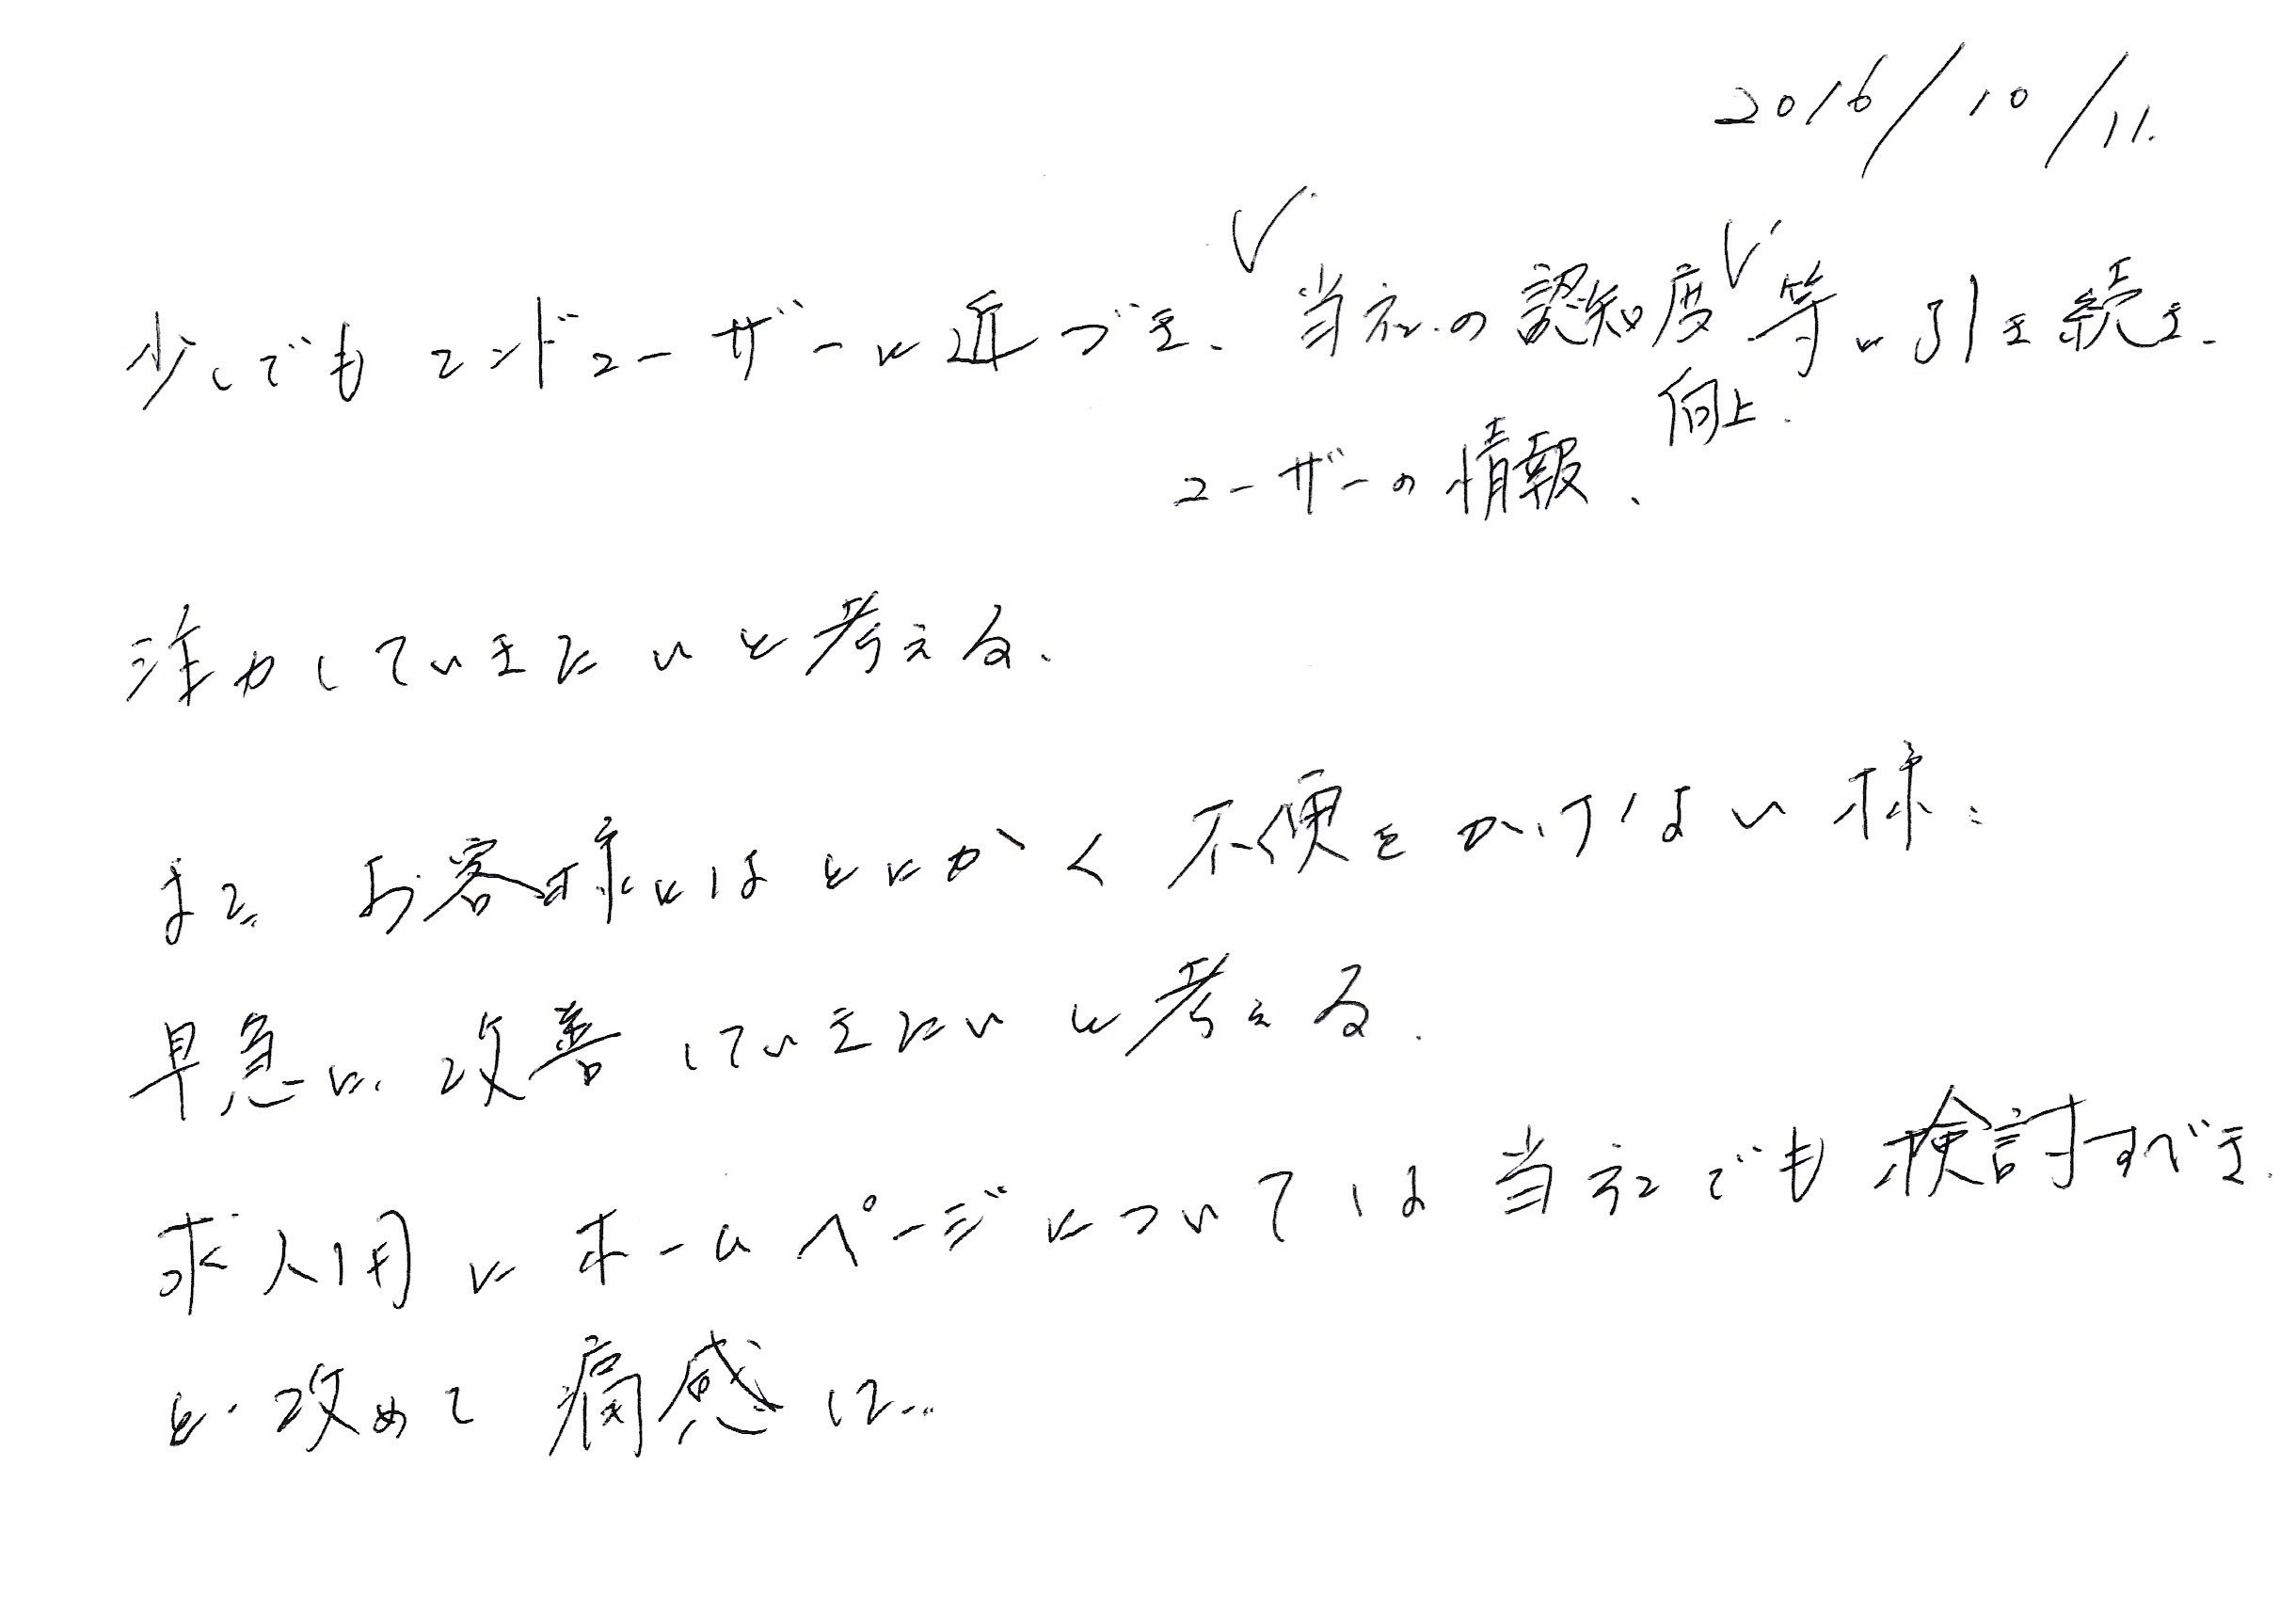 2016/10/11.
少しでもエンドユーザーに近づき、当社の認知度等に引き続き、
向上、
ユーザーの情報、
注力していきたいと考える。
また、お客様にはとにかく不便をかけない様に
早急に、改善していきたいと考える。
求人用にホームページについては当社でも検討すべき
と、改めて痛感した。